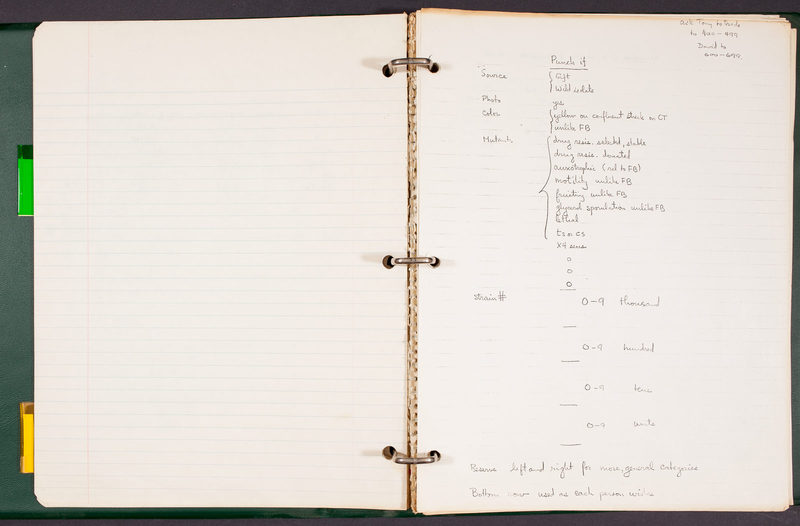 ask Tony to
to 400-499
David to
600-699
Punch if
Source { Gift
Wild isolate
Photo yes
Color { yellow on confluent streak on CT
unlike FB
Mutant { drug resis. selected, stable
drug resis. donated
auxotrophic (rel to FB)
motility unlike FB
fruiting unlike FB
glycerol sporulation unlike FB
lethal
ts or cs
X4 sens
0
0
0
Strain # 0-9 thousand
0-9 hundred
0-9 tens
0-9 units
Reserve left and right for more, general categories
Bottom rows used as each person wishes